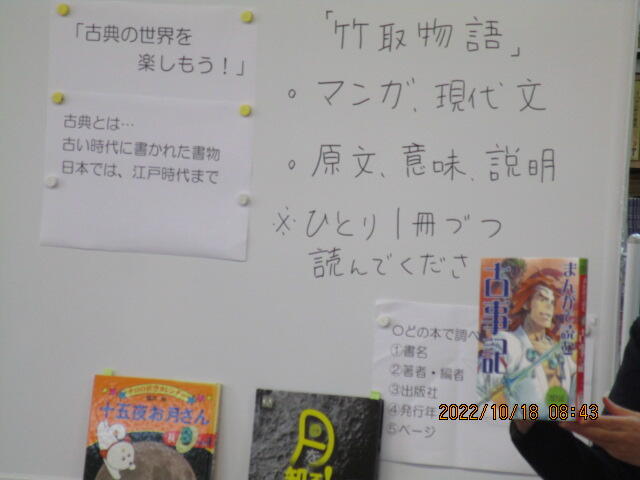 「古典の世界を
楽しもう！」
古典とは…
古い時代に書かれた書物
日本では、江戸時代まで
「竹取物語」
。マンガ、現代文
。原文、意味、説明
※ひとり1冊づつ
読んでくださ
○どの本で調べ
①書名
②著者・編者
③出版社
④発行年
⑤ページ
まんがで読む
古事記
十五夜お月さん
月を
知る!
2022/10/18 08:43